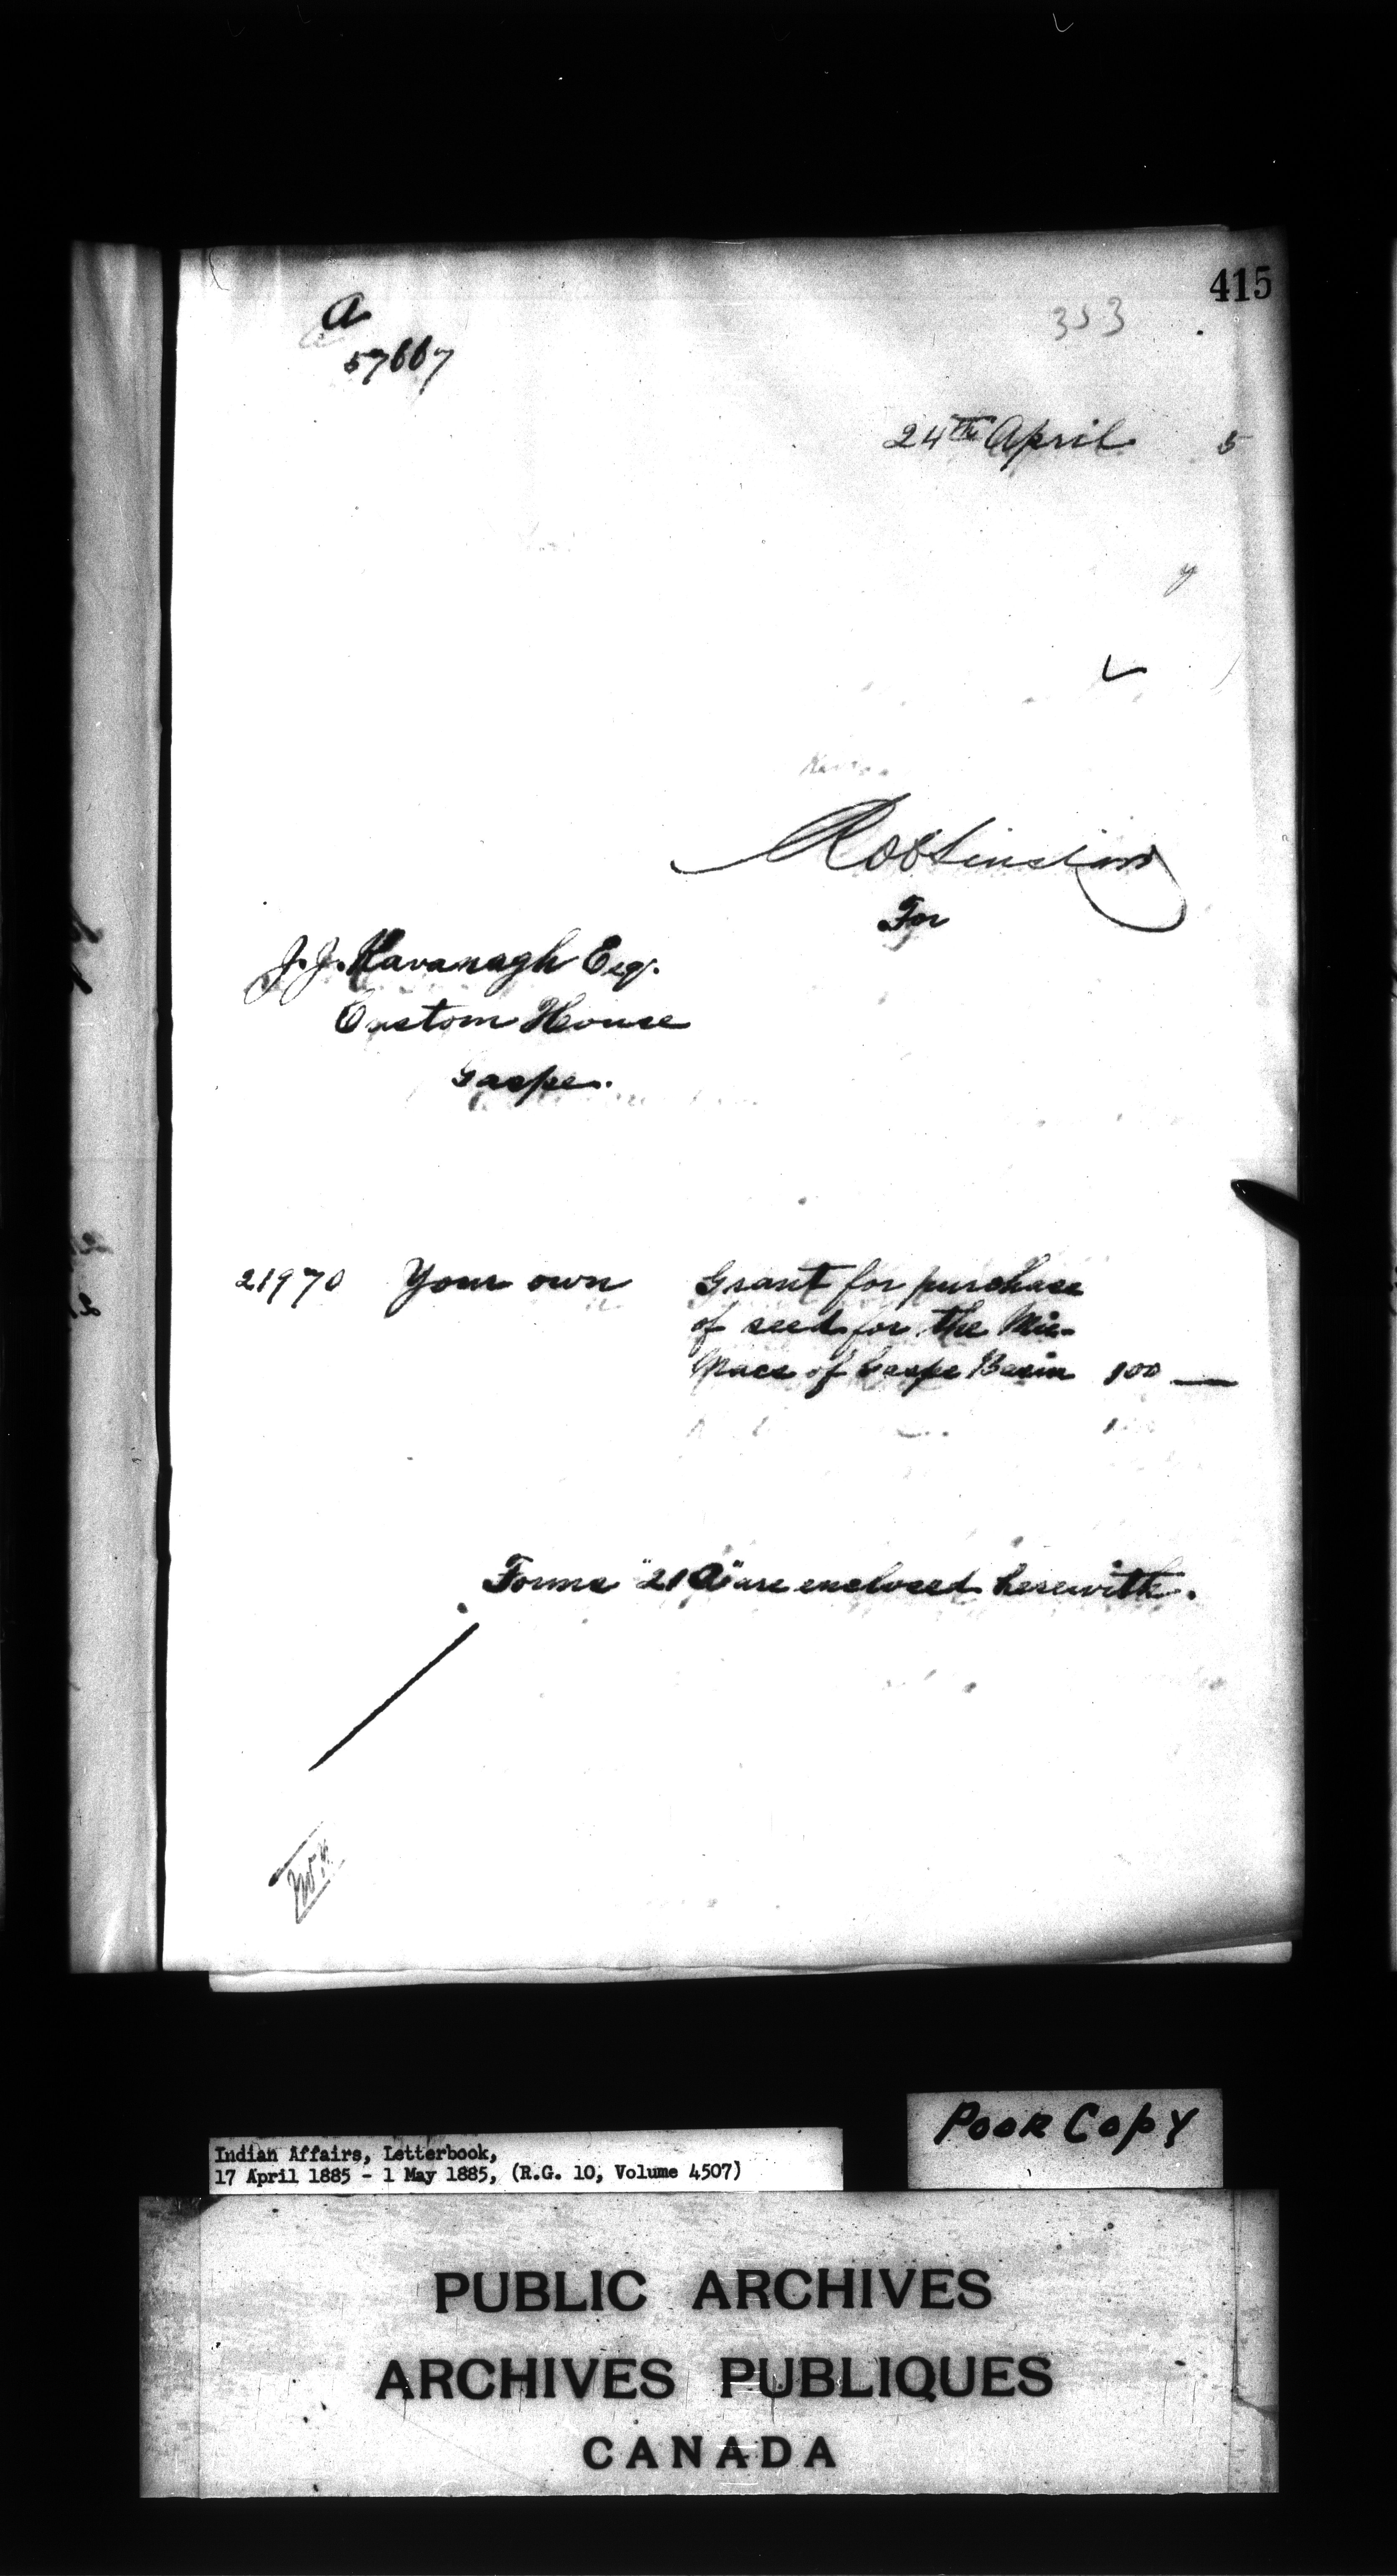 415
353
a
57667
24th April 5
For
J. J. Kavanagh Esq.
Custom House
Gaspe.
21970 Your own Grant for purchase
of seed for the Mic-
Macs of Gaspe Basin 100 —
Forms "21 a" are enclosed herewith.
POOR COPY
Indian Affairs, Letterbook,
17 April 1885 - 1 May 1885, (R.G. 10, Volume 4507)
PUBLIC ARCHIVES
ARCHIVES PUBLIQUES
CANADA